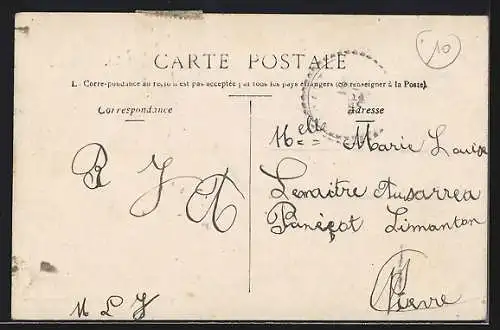 CARTE POSTALE
10
La Correspondance au recto n'est pas acceptée par tous les pays étrangers (se renseigner à la Poste).
Correspondance
Adresse
Melle Marie Louise
Lemaitre
Panéçot Limanton
Nièvre
M L J